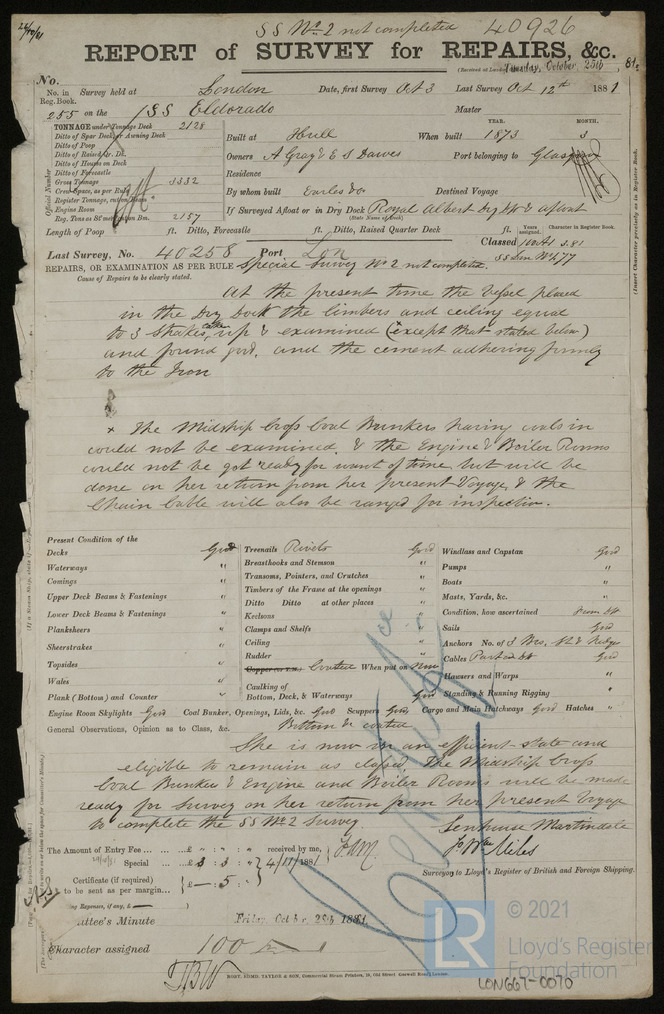 SS No. 2 not completed 40926
REPORT of SURVEY for REPAIRS, &c.
(Received at London Tuesday, October 25th 81
No.
No. in Reg. Book. Survey held at London Date, first Survey Oct 3 Last Survey Oct 12th 1881
255 on the SS Eldorado Master
TONNAGE under Tonnage Deck 2128
Ditto of Spar Deck or Awning Deck
Ditto of Poop
Ditto of Raised Qr. Dk.
Ditto of Houses on Deck
Ditto of Forecastle
Gross Tonnage 3332
Crew Space, as per Rule
Register Tonnage, cut on Beam
Engine Room
Reg. Tons as cut on Bm. 2157
Official Number
YEAR. MONTH.
Built at Hull When built 1873 3
Owners A Gray & E S Dawes Port belonging to Glasgow
Residence
By whom built Earles & Co Destined Voyage
If Surveyed Afloat or in Dry Dock Royal Albert Dry Dk & afloat
(State Name of Dock)
Length of Poop ft. Ditto, Forecastle ft. Ditto, Raised Quarter Deck ft.
Years assigned. Character in Register Book.
Last Survey, No. 40258 Port Lon Classed 100A1 3.81
SS Lon No. 1.77
REPAIRS, OR EXAMINATION AS PER RULE Special Survey No 2 not completed.
Cause of Repairs to be clearly stated.
At the present time the Vessel placed
in the Dry Dock the limbers and ceiling equal
to 3 Strakes taken up & examined (except that stated below)
and found good, and the cement adhering firmly
to the Iron
x The Midship Cross Coal Bunkers having coals in
could not be examined, & the Engine & Boiler Rooms
could not be got ready for want of time, but will be
done on her return from her present Voyage, & the
Chain Cable will also be ranged for inspection.
Present Condition of the
Decks Good
Waterways "
Comings "
Upper Deck Beams & Fastenings "
Lower Deck Beams & Fastenings "
Planksheers "
Sheerstrakes "
Topsides "
Wales "
Plank (Bottom) and Counter "
Treenails Rivets Good
Breasthooks and Stemson "
Transoms, Pointers, and Crutches "
Timbers of the Frame at the openings "
Ditto Ditto at other places "
Keelsons "
Clamps and Shelfs "
Ceiling "
Rudder "
Copper or Y.M. Coated When put on Now
Caulking of
Bottom, Deck, & Waterways Good
Windlass and Capstan Good
Pumps "
Boats "
Masts, Yards, &c. "
Condition, how ascertained From Dk
Sails Good
Anchors No. of 3 Brs, St & Kedges
Cables Good
Hawsers and Warps "
Standing & Running Rigging "
Engine Room Skylights Good Coal Bunker, Openings, Lids, &c. Good Scuppers Good Cargo and Main Hatchways Good Hatches "
General Observations, Opinion as to Class, &c. Bottom coated
She is now in an efficient state and
eligible to remain as classed. The Midship Cross
Coal Bunker & Engine and Boiler Rooms will be made
ready for Survey on her return from her present Voyage
to complete the SS No 2 Survey
The Amount of Entry Fee ... £ " : " : " received by me,
Special ... £ 3 : 3 : " 4/11/1881
Certificate (if required) to be sent as per margin... £ - : 5 :
Lenhouse Martindale
Jo Wm Miles
Surveyor to Lloyd's Register of British and Foreign Shipping.
ttee's Minute Friday, October 28th 1881
Character assigned 100
ROBT. EDMD. TAYLOR & SON, Commercial Steam Printers, 19, Old Street, Goswell Road, London.
© 2021
LR Lloyd's Register
Foundation
LON667-0070